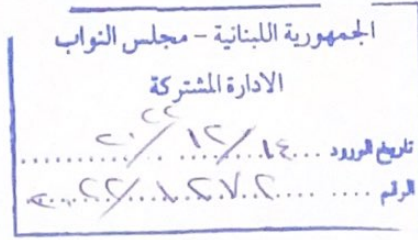 الجمهورية اللبنانية – مجلس النواب
الادارة المشتركة
تاريخ الورود ... ١٤/١٢/٢٠٢٢
الرقم